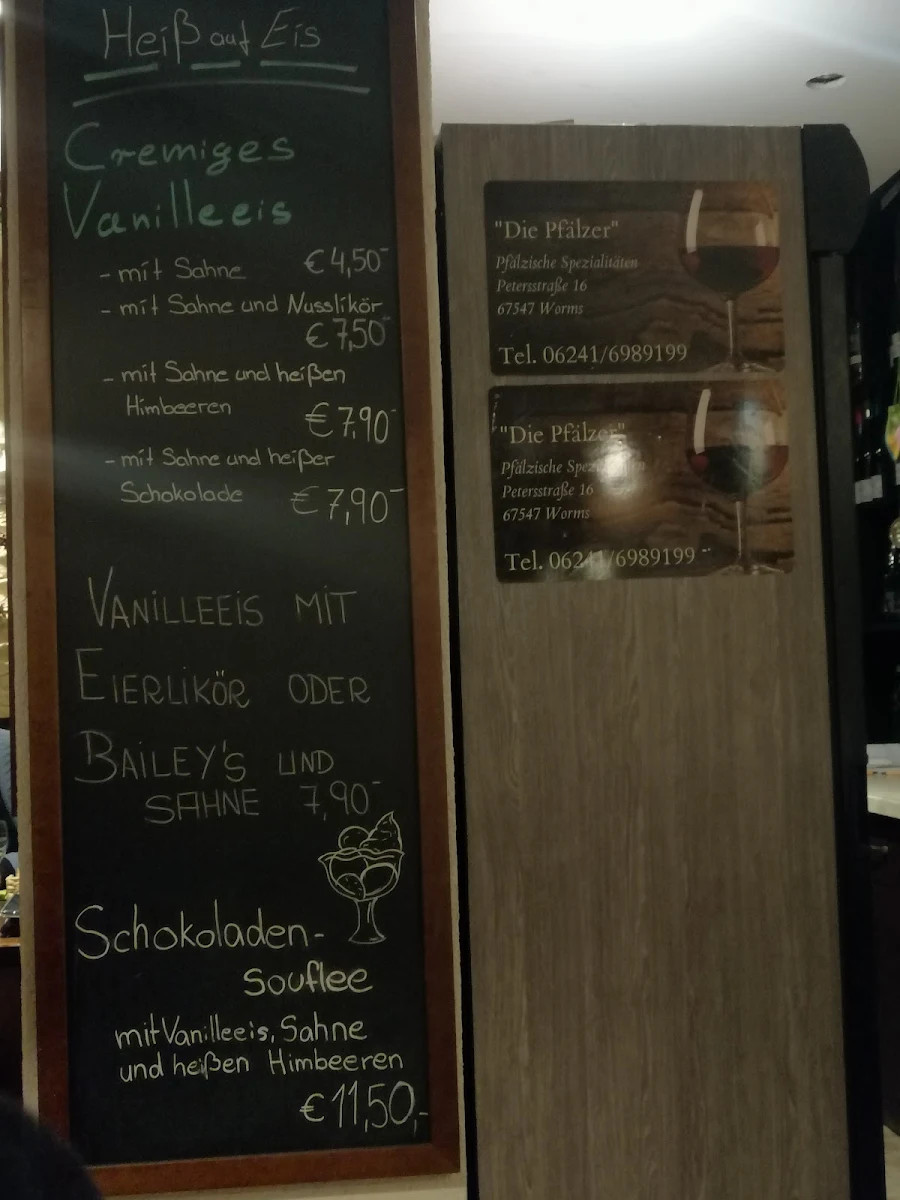 Heiß auf Eis
Cremiges
Vanilleeis
- mit Sahne € 4,50
- mit Sahne und Nusslikör
€ 7,50
- mit Sahne und heißen
Himbeeren € 7,90
- mit Sahne und heißer
Schokolade € 7,90
VANILLEEIS MIT
EIERLIKÖR ODER
BAILEY'S UND
SAHNE 7,90
Schokoladen-
souflee
mit Vanilleeis, Sahne
und heißen Himbeeren
€ 11,50,-
"Die Pfälzer"
Pfälzische Spezialitäten
Petersstraße 16
67547 Worms
Tel. 06241/6989199
"Die Pfälzer"
Pfälzische Spezialitäten
Petersstraße 16
67547 Worms
Tel. 06241/6989199